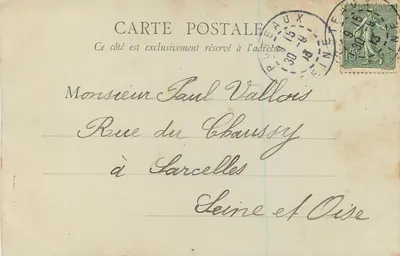 CARTE POSTALE
Ce côté est exclusivement réservé à l'adresse
PUTEAUX
SEINE
Monsieur Paul Vallois
Rue du Chaussy
à Sarcelles
Seine et Oise